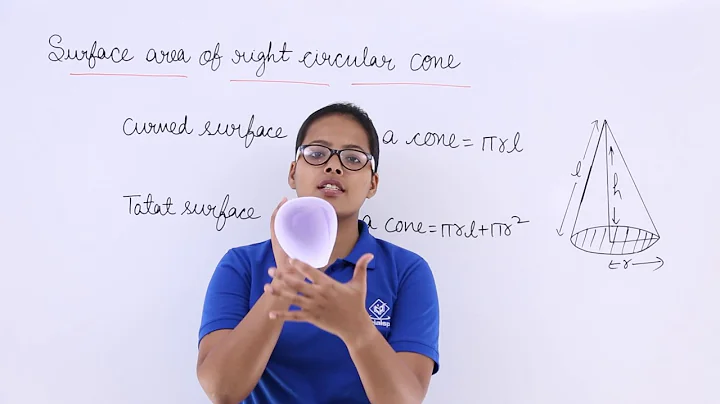 Surface area of right circular cone
Curved surface a cone = πrl
Total surface a cone = πrl + πr²
l
h
r